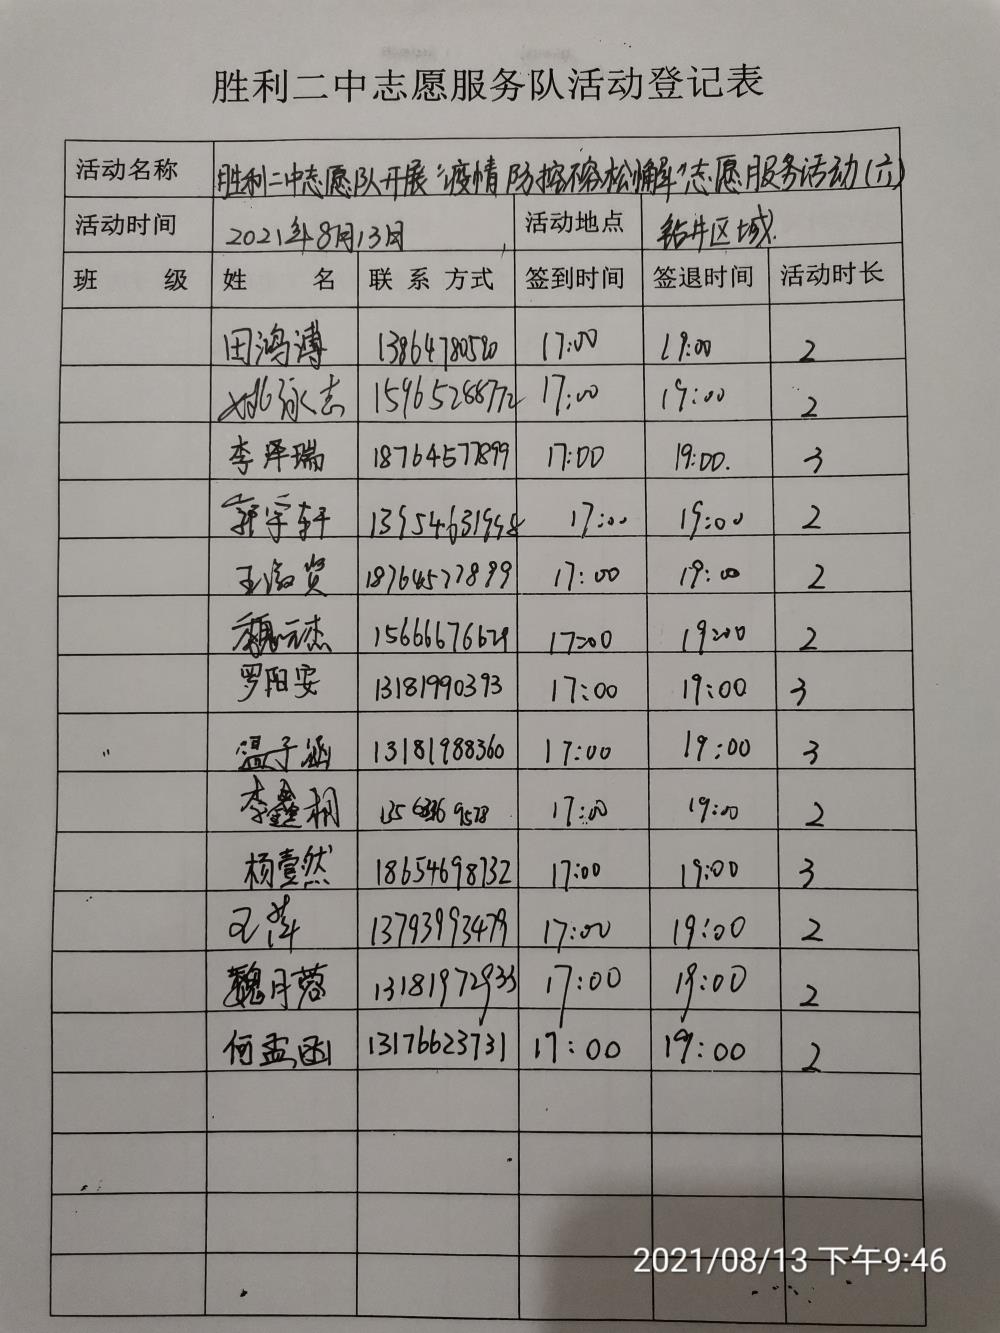 胜利二中志愿服务队活动登记表
活动名称 胜利二中志愿队开展“疫情防控不容松懈”志愿服务活动(六)
活动时间 2021年8月13日 活动地点 钻井区域.
班 级 姓 名 联系方式 签到时间 签退时间 活动时长
田鸿溥 13864780520 17:00 19:00 2
姚泳志 15965288772 17:00 19:00 2
李泽瑞 18764577899 17:00 19:00. 3
郭宇轩 13954631998 17:00 19:00 2
王 18764577899 17:00 19:00 2
魏元杰 15666676629 17:00 19:00 2
罗阳安 13181990393 17:00 19:00 3
温子涵 13181988360 17:00 19:00 3
李鑫桐 17:00 19:00 2
杨壹然 18654698732 17:00 19:00 3
王 13793993479 17:00 19:00 2
魏月蓉 13181972933 17:00 19:00 2
何孟函 13176623731 17:00 19:00 2
2021/08/13 下午9:46